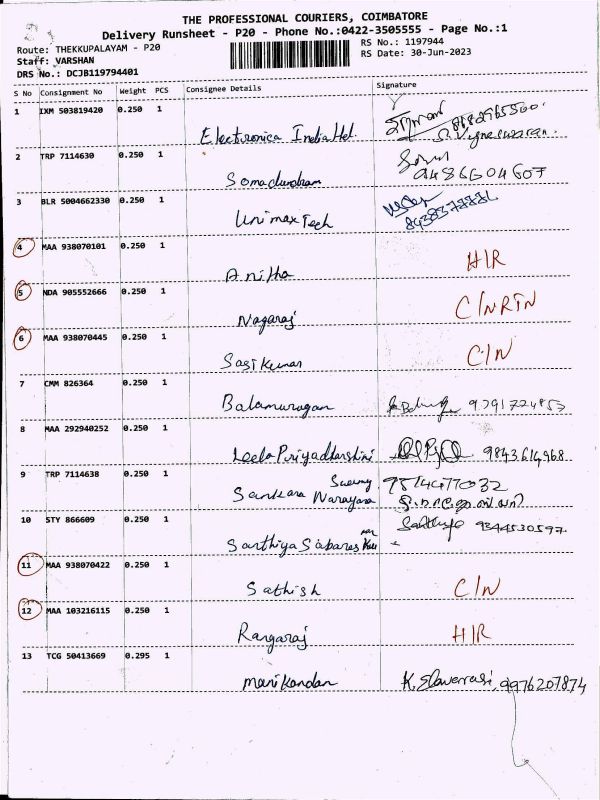 THE PROFESSIONAL COURIERS, COIMBATORE
Delivery Runsheet - P20 - Phone No.:0422-3505555 - Page No.:1
Route: THEKKUPALAYAM - P20
RS No.: 1197944
Staff: VARSHAN
RS Date: 30-Jun-2023
DRS No.: DCJB119794401
S No Consignment No Weight PCS Consignee Details Signature
1 IXM 503819420 0.250 1
Electronica India Ltd.
S. Vigneswaran.
2 TRP 7114630 0.250 1
Somadurdram 9486604607
3 BLR 5004662330 0.250 1
Unimax Tech
4 MAA 938070101 0.250 1
Anitha H/R
5 NDA 905552666 0.250 1
Nagaraj C/NRTN
6 MAA 938070445 0.250 1
Sasikumar C/N
7 CMM 826364 0.250 1
Balamurugan 9791724853
8 MAA 292940252 0.250 1
Leela Priyadharshini 9843614968
9 TRP 7114638 0.250 1
Swamy
Sankara Narayana
10 STY 866609 0.250 1
9344530597
Santhiya Sabares
11 MAA 938070422 0.250 1
Sathish C/N
12 MAA 103216115 0.250 1
Rangaraj H/R
13 TCG 50413669 0.295 1
Manikandan 9976207874